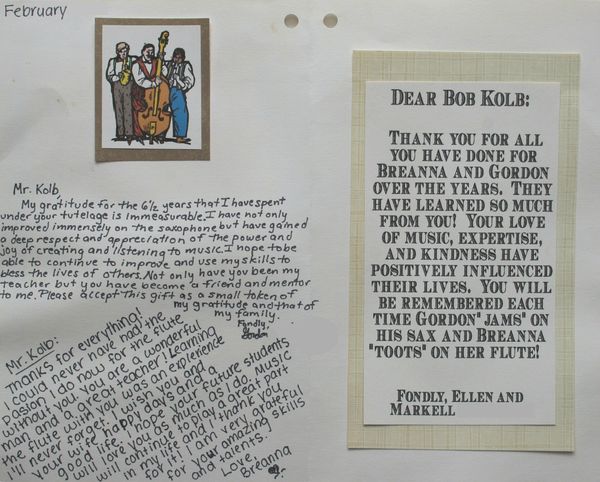 February
Mr. Kolb,
My gratitude for the 6½ years that I have spent
under your tutelage is immeasurable. I have not only
improved immensely on the saxophone but have gained
a deep respect and appreciation of the power and
joy of creating and listening to music. I hope to be
able to continue to improve and use my skills to
bless the lives of others. Not only have you been my
teacher but you have become a friend and mentor
to me. Please accept this gift as a small token of
my gratitude and that of
my family.
Fondly,
Gordon
Mr. Kolb:
Thanks for everything!
I could never have had the
pasion I do now for the flute
without you. You are a wonderful
man and a great teacher! Learning
the flute with you was an experience
I'll never forget. I wish you and
your wife happy days and a
good life. I hope your future students
will love you as much as I do. Music
will continue to play a great part
in my life and I thank you
for it! I am very grateful
for your amazing skills
and talents.
Love,
Breanna
DEAR BOB KOLB:
THANK YOU FOR ALL
YOU HAVE DONE FOR
BREANNA AND GORDON
OVER THE YEARS. THEY
HAVE LEARNED SO MUCH
FROM YOU! YOUR LOVE
OF MUSIC, EXPERTISE,
AND KINDNESS HAVE
POSITIVELY INFLUENCED
THEIR LIVES. YOU WILL
BE REMEMBERED EACH
TIME GORDON "JAMS" ON
HIS SAX AND BREANNA
"TOOTS" ON HER FLUTE!
FONDLY, ELLEN AND
MARKELL